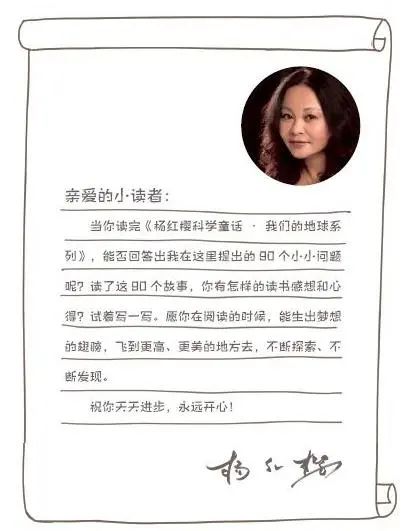 亲爱的小读者：
当你读完《杨红樱科学童话 · 我们的地球系
列》，能否回答出我在这里提出的 80 个小小问题
呢？读了这 80 个故事，你有怎样的读书感想和心
得？试着写一写。愿你在阅读的时候，能生出梦想
的翅膀，飞到更高、更美的地方去，不断探索、不
断发现。
祝你天天进步，永远开心！
杨红樱